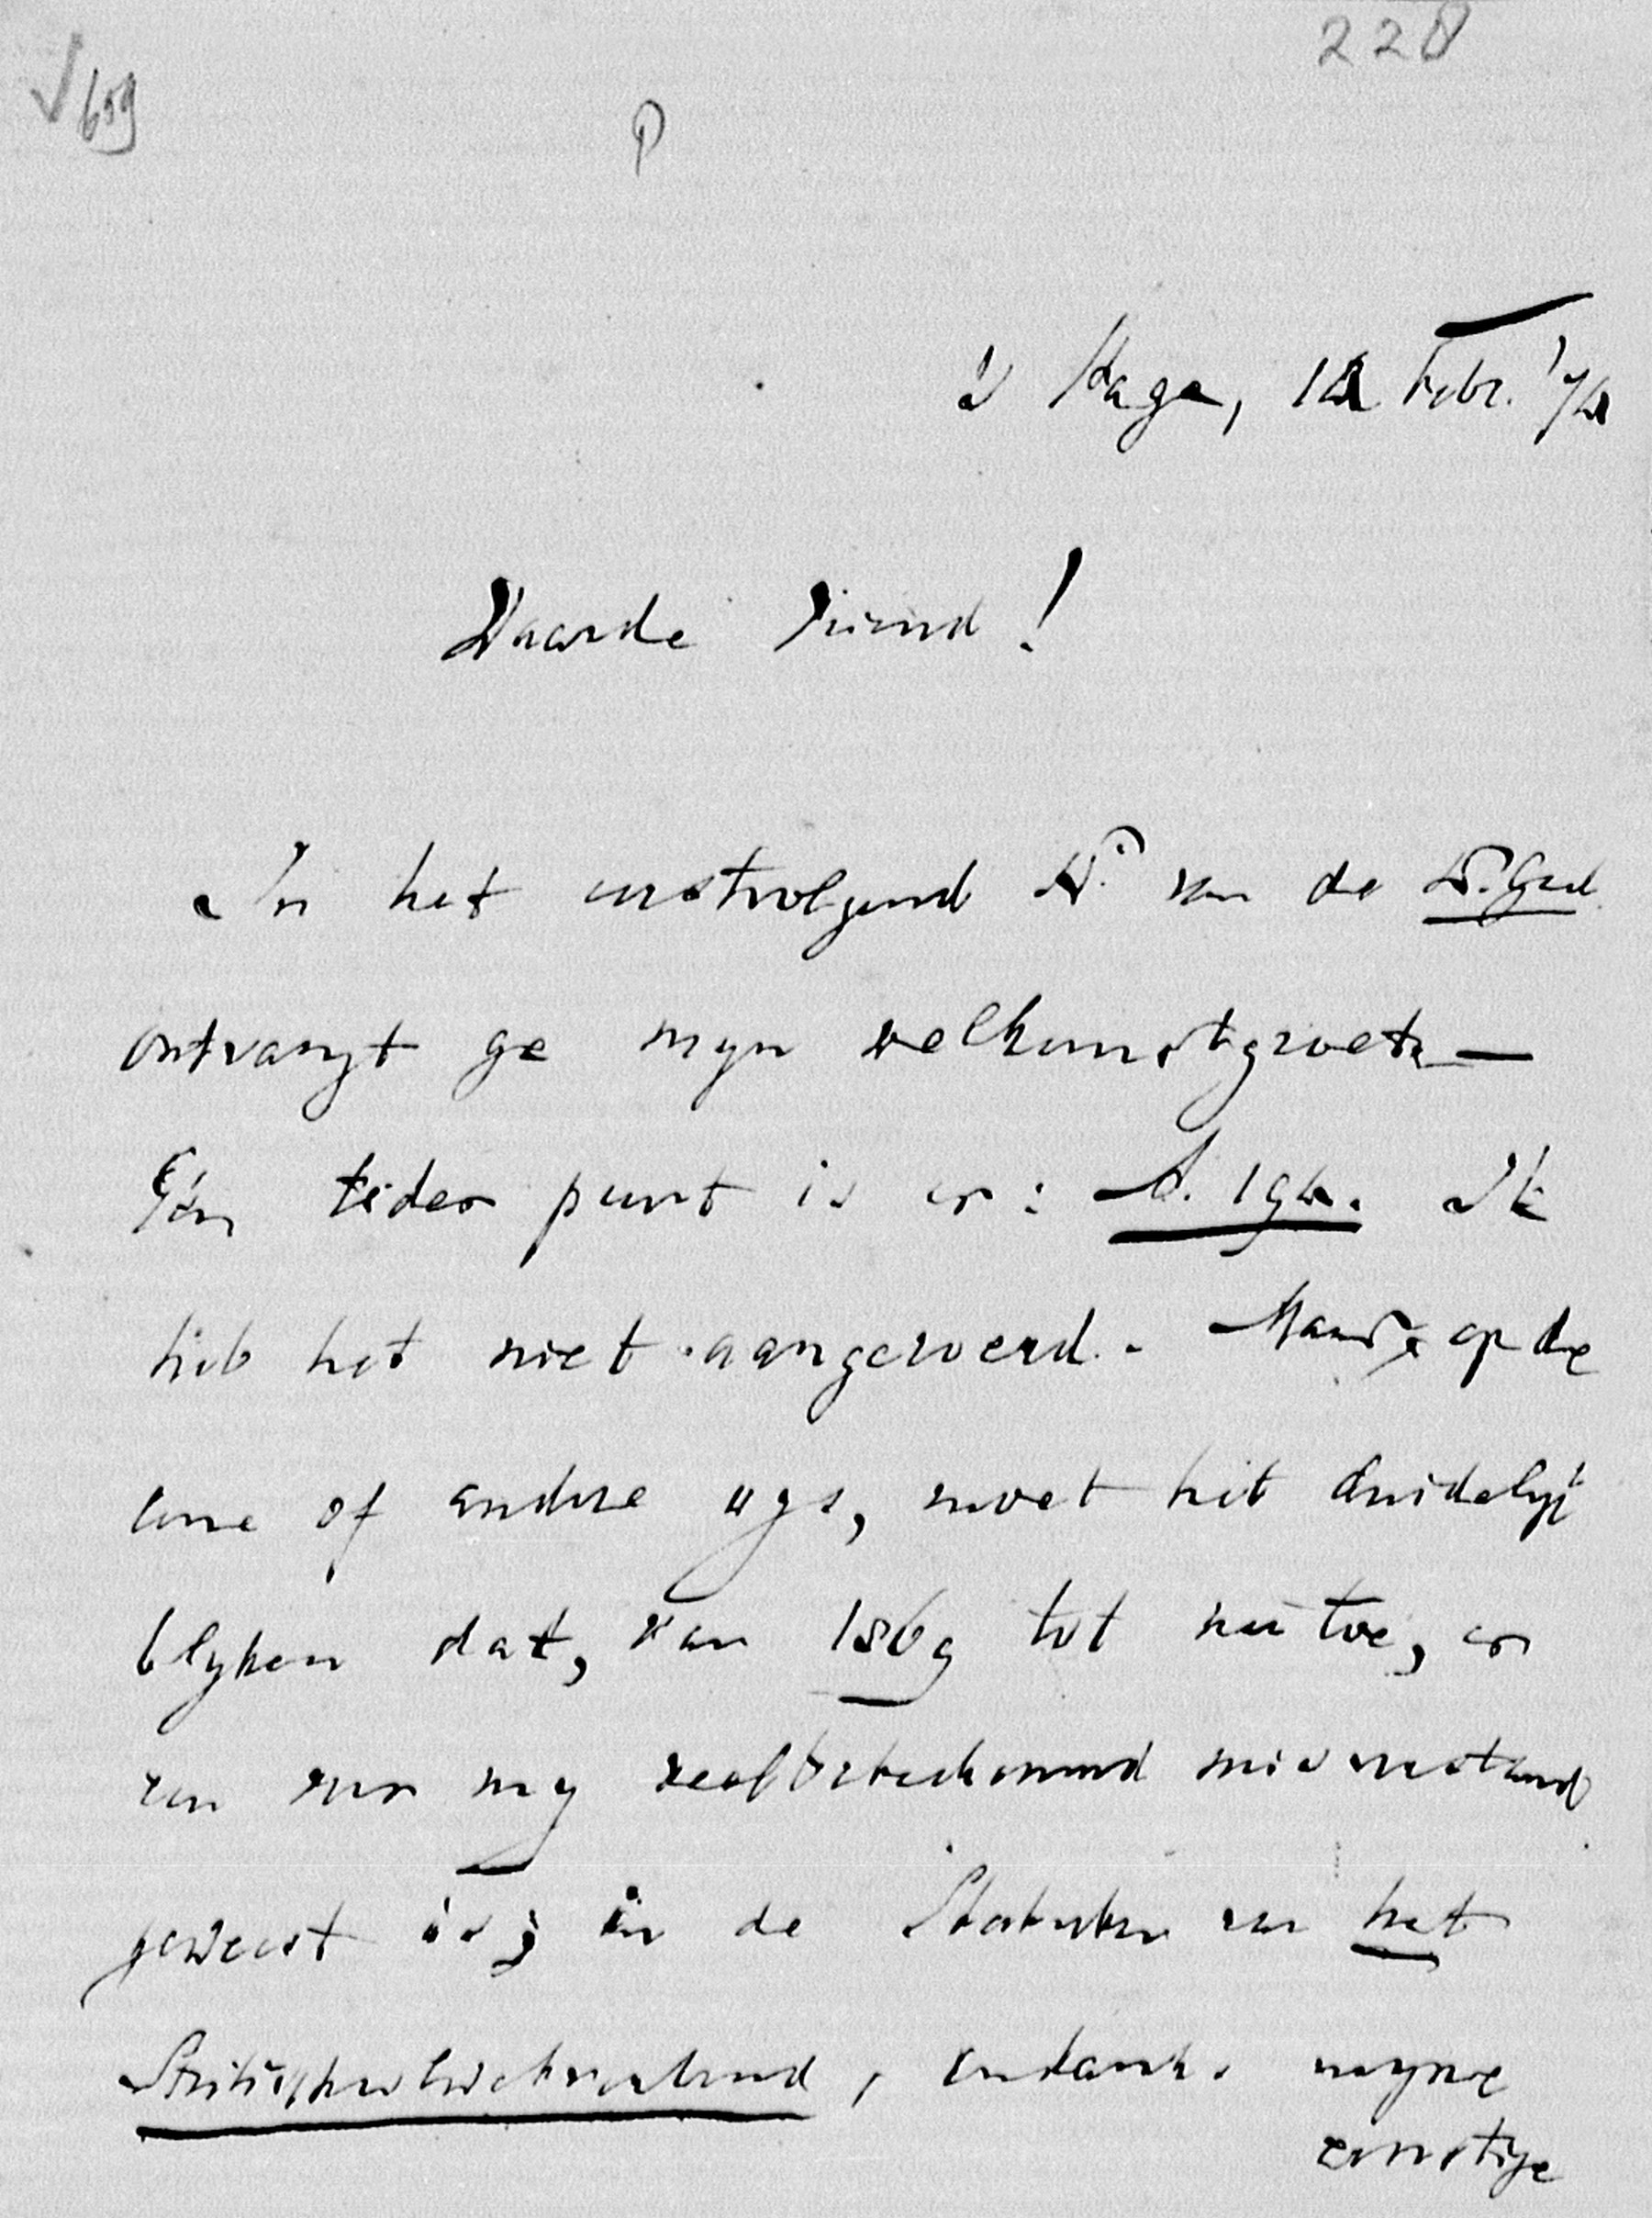 228
√ 659
P
's Hage, 12 Febr. '74
Waarde Vriend!
In het eerstvolgend N.º van de N. Ged.
ontvangt ge mijn welkomstgroet. —
Één teder punt is er: A. 194. Ik
heb het niet aangeroerd. - Maar, op de
eene of andere wijs, moet het duidelijk
blijken dat, van 1869 tot nu toe, er
een voor mij misverstand
geweest is; in de Statuten van het
Schoolverbond, ondanks mijne
ernstige